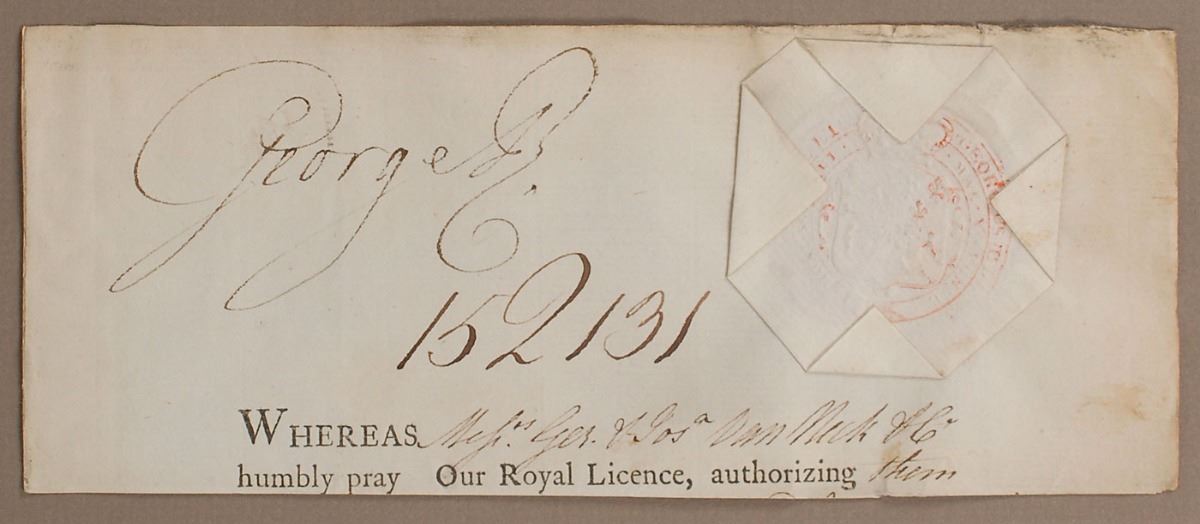 George R
152131
WHEREAS Mess.rs Ger. & Jos.a Van Neck & Co
humbly pray Our Royal Licence, authorizing them